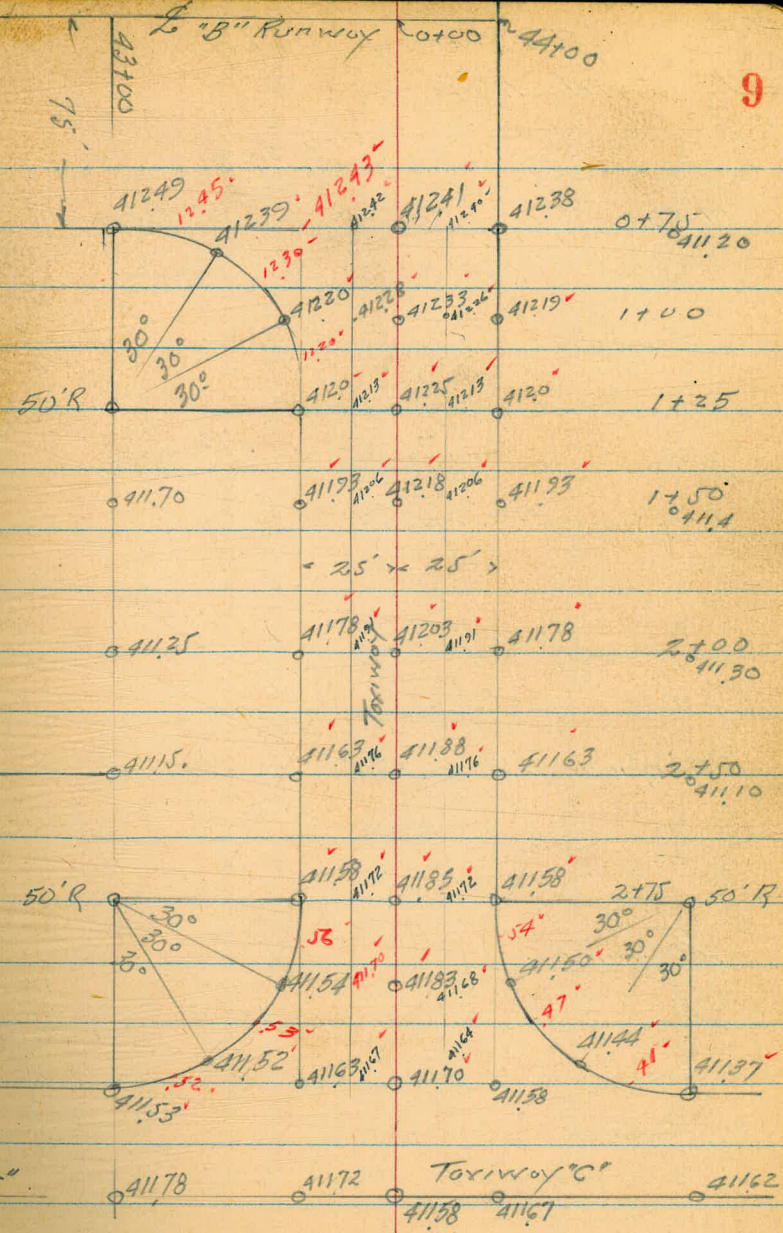 ℄ "B" Runway 0+00 44+00
43+00
9
75'
41249 1245. 41239 41243 41242 41241 41240 41238 0+75
41120
1230 41220 41228 41233 41226 41219 1+00
30° 30° 30° 1220
50'R 4120 41213 41225 41213 4120 1+25
411.70 41193 41206 41218 41206 41193 1+50
411.4
25' 25'
41125 41178 41191 41203 41191 41178 2+00
411.30
Taxiway
4115. 41163 41176 41188 41176 41163 2+50
41110
50'R 41158 41172 41185 41172 41158 2+75 50'R
30° 30° 30° 56 54 30° 30° 30°
41154 41170 41183 41168 41150
.53 47
41152 41167 41164 41144
.52 41163 41170 41158 41 41137
41153
Taxiway "C"
41178 41172 41158 41167 41162